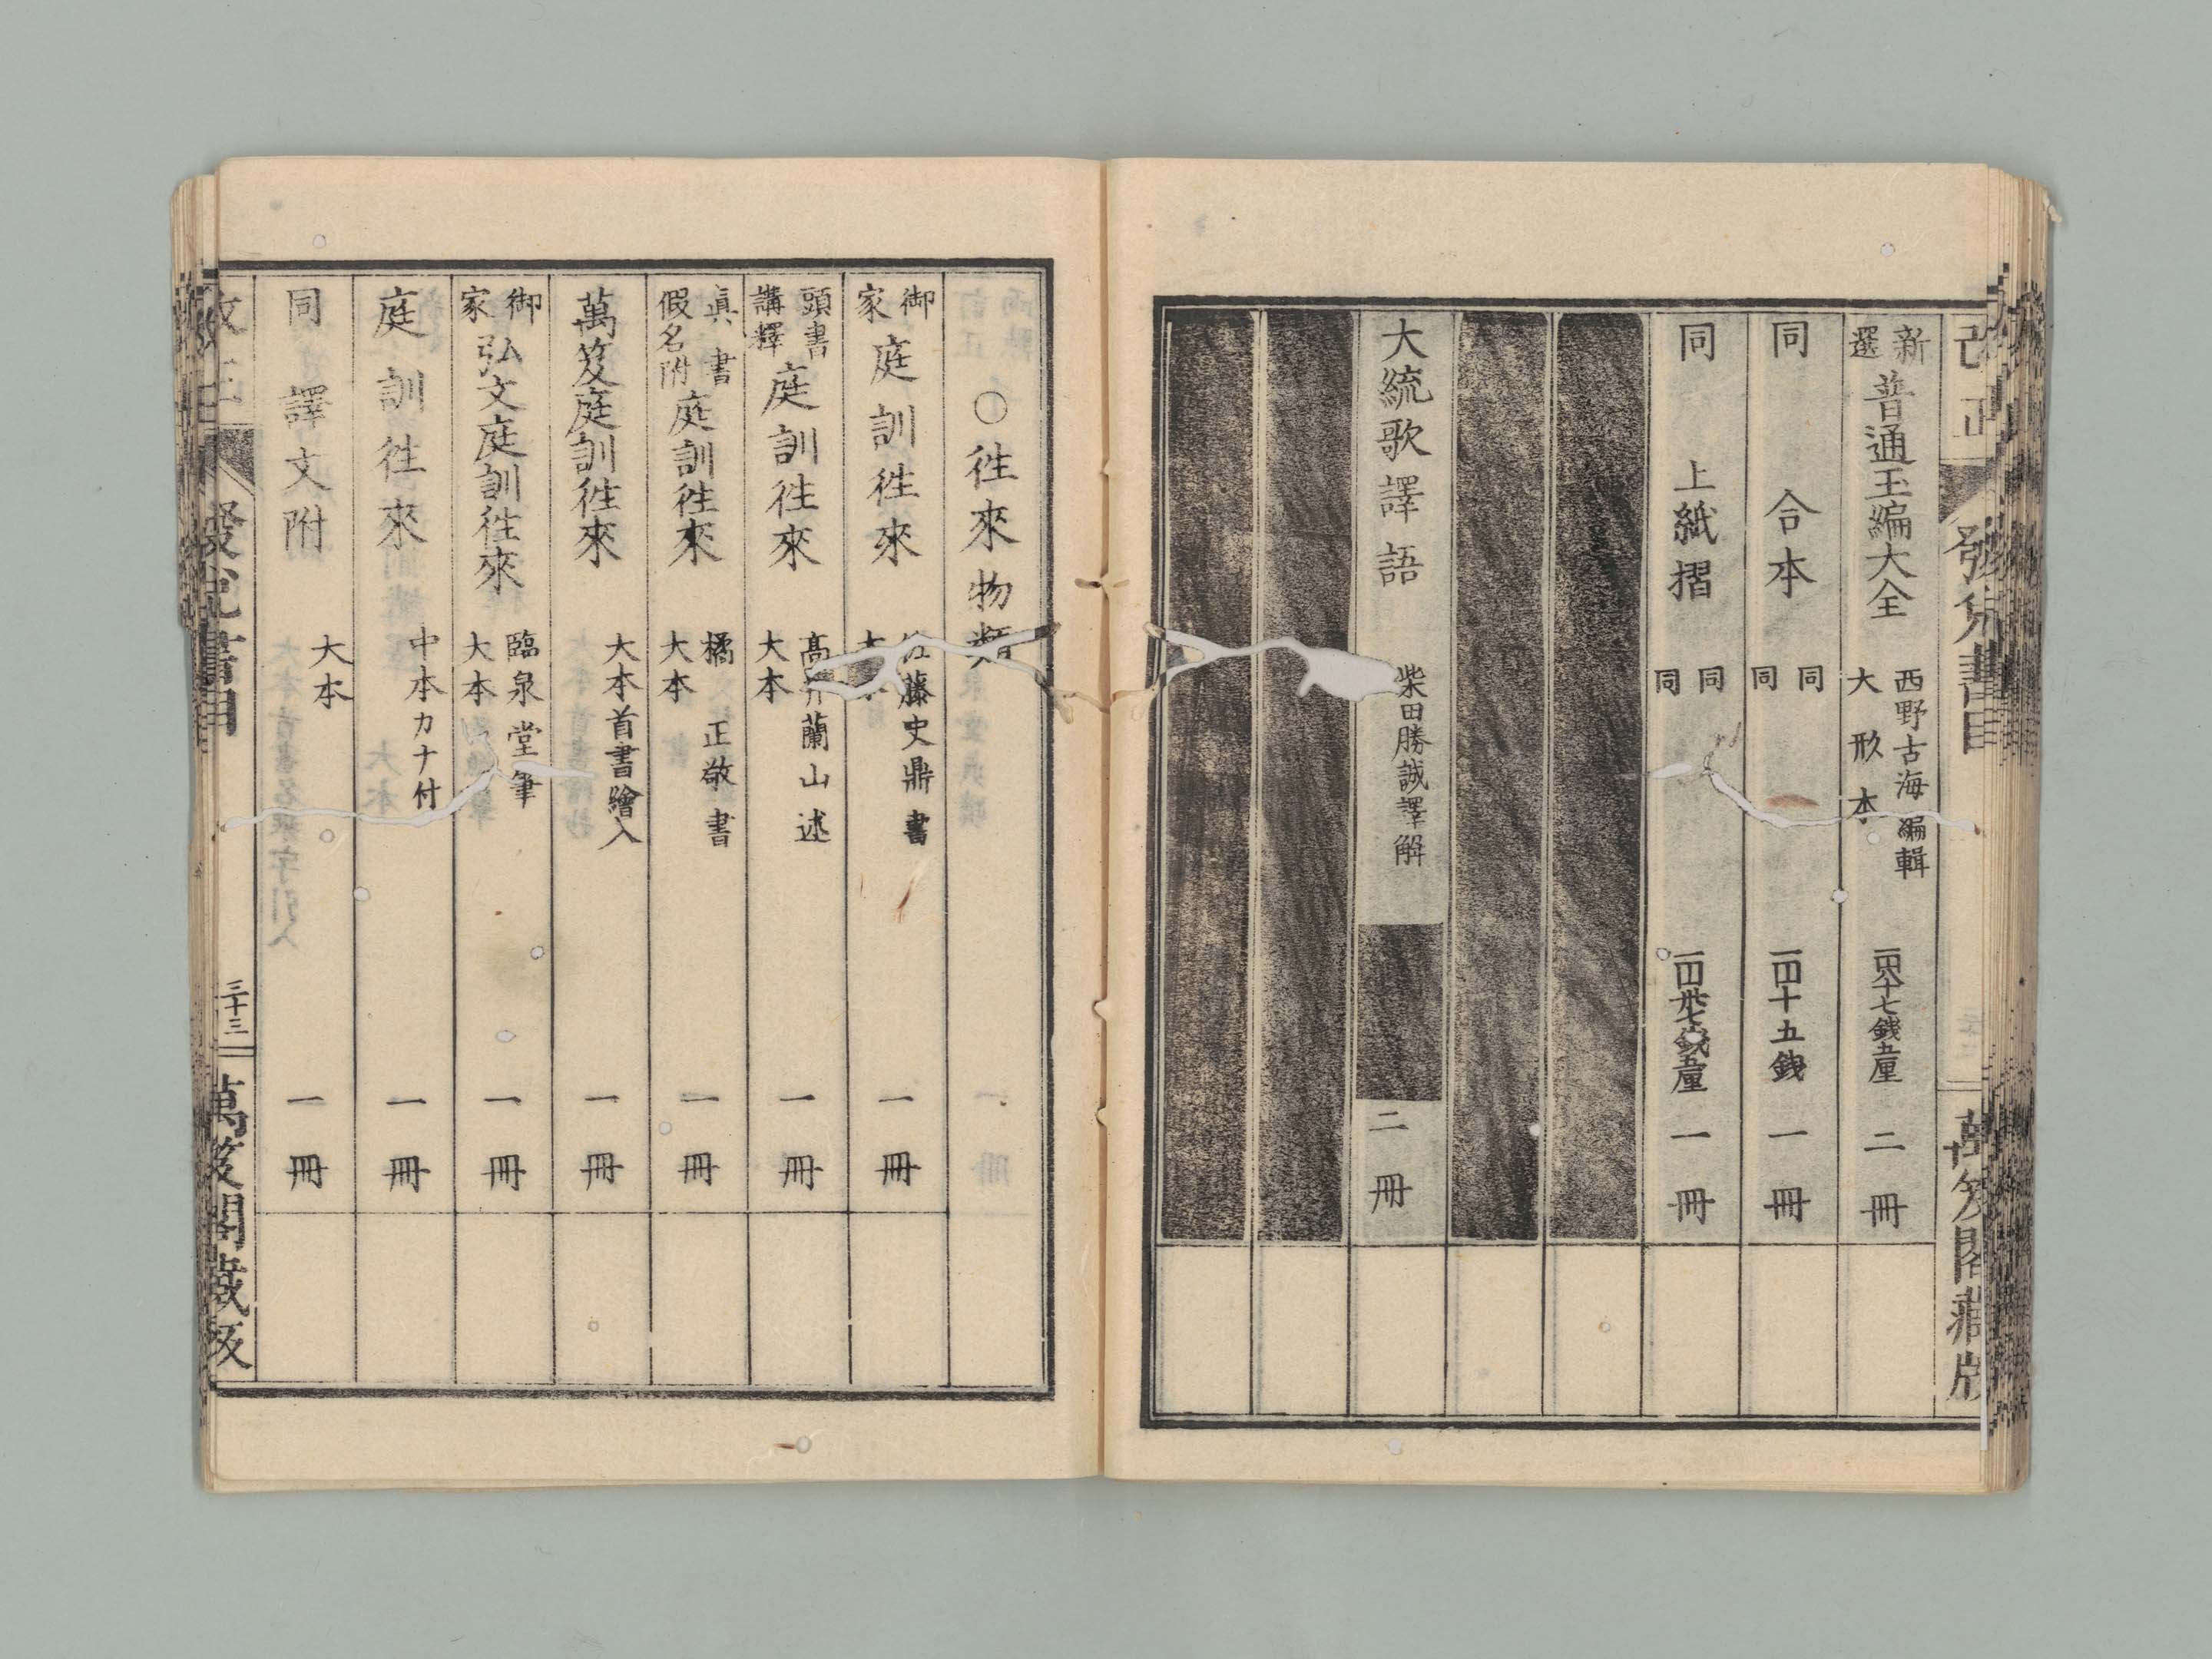 改正 發兌書目 萬笈閣藏版
新選 普通玉編大全 西野古海編輯 大形本 七錢五厘 二冊
同 合本 同同 一円十五錢 一冊
同 上紙摺 同同 一円卅七錢五厘 一冊
大統歌譯語 柴田勝誠譯解 二冊
○徃來物類
御家 庭訓徃來 佐藤史鼎書 大本 一冊
頭書講釋 庭訓徃來 高井蘭山述 大本 一冊
眞書假名附 庭訓徃來 橘正敬書 大本 一冊
萬笈庭訓徃來 大本首書繪入 一冊
御家 弘文庭訓徃來 臨泉堂筆 大本 一冊
庭訓徃來 中本カナ付 一冊
同 譯文附 大本 一冊
改正 發兌書目 三十三 萬笈閣藏版